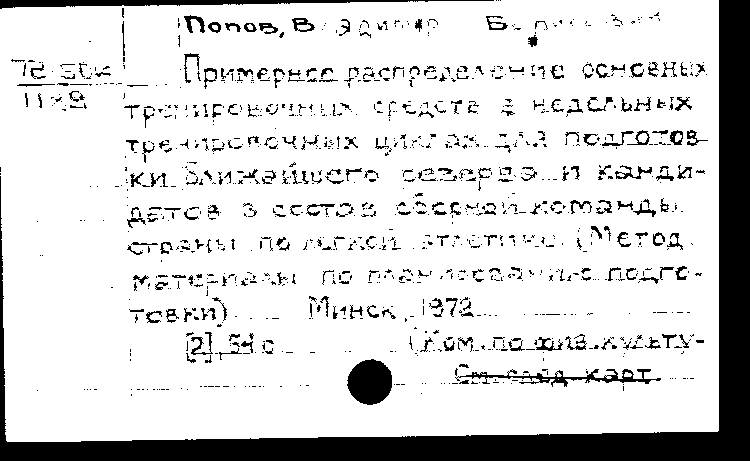 Попов, Владимир Борисович
Примерное распределение основных
тренировочных средств в недельных
тренировочных циклах для подготов-
ки ближайшего резерва и канди-
датов в состав сборной команды
страны по легкой атлетике (Метод.
материалы по планированию подго-
товки) Минск, 1972
[2], 54 с (Ком. по физ. культу-
См. след. карт.